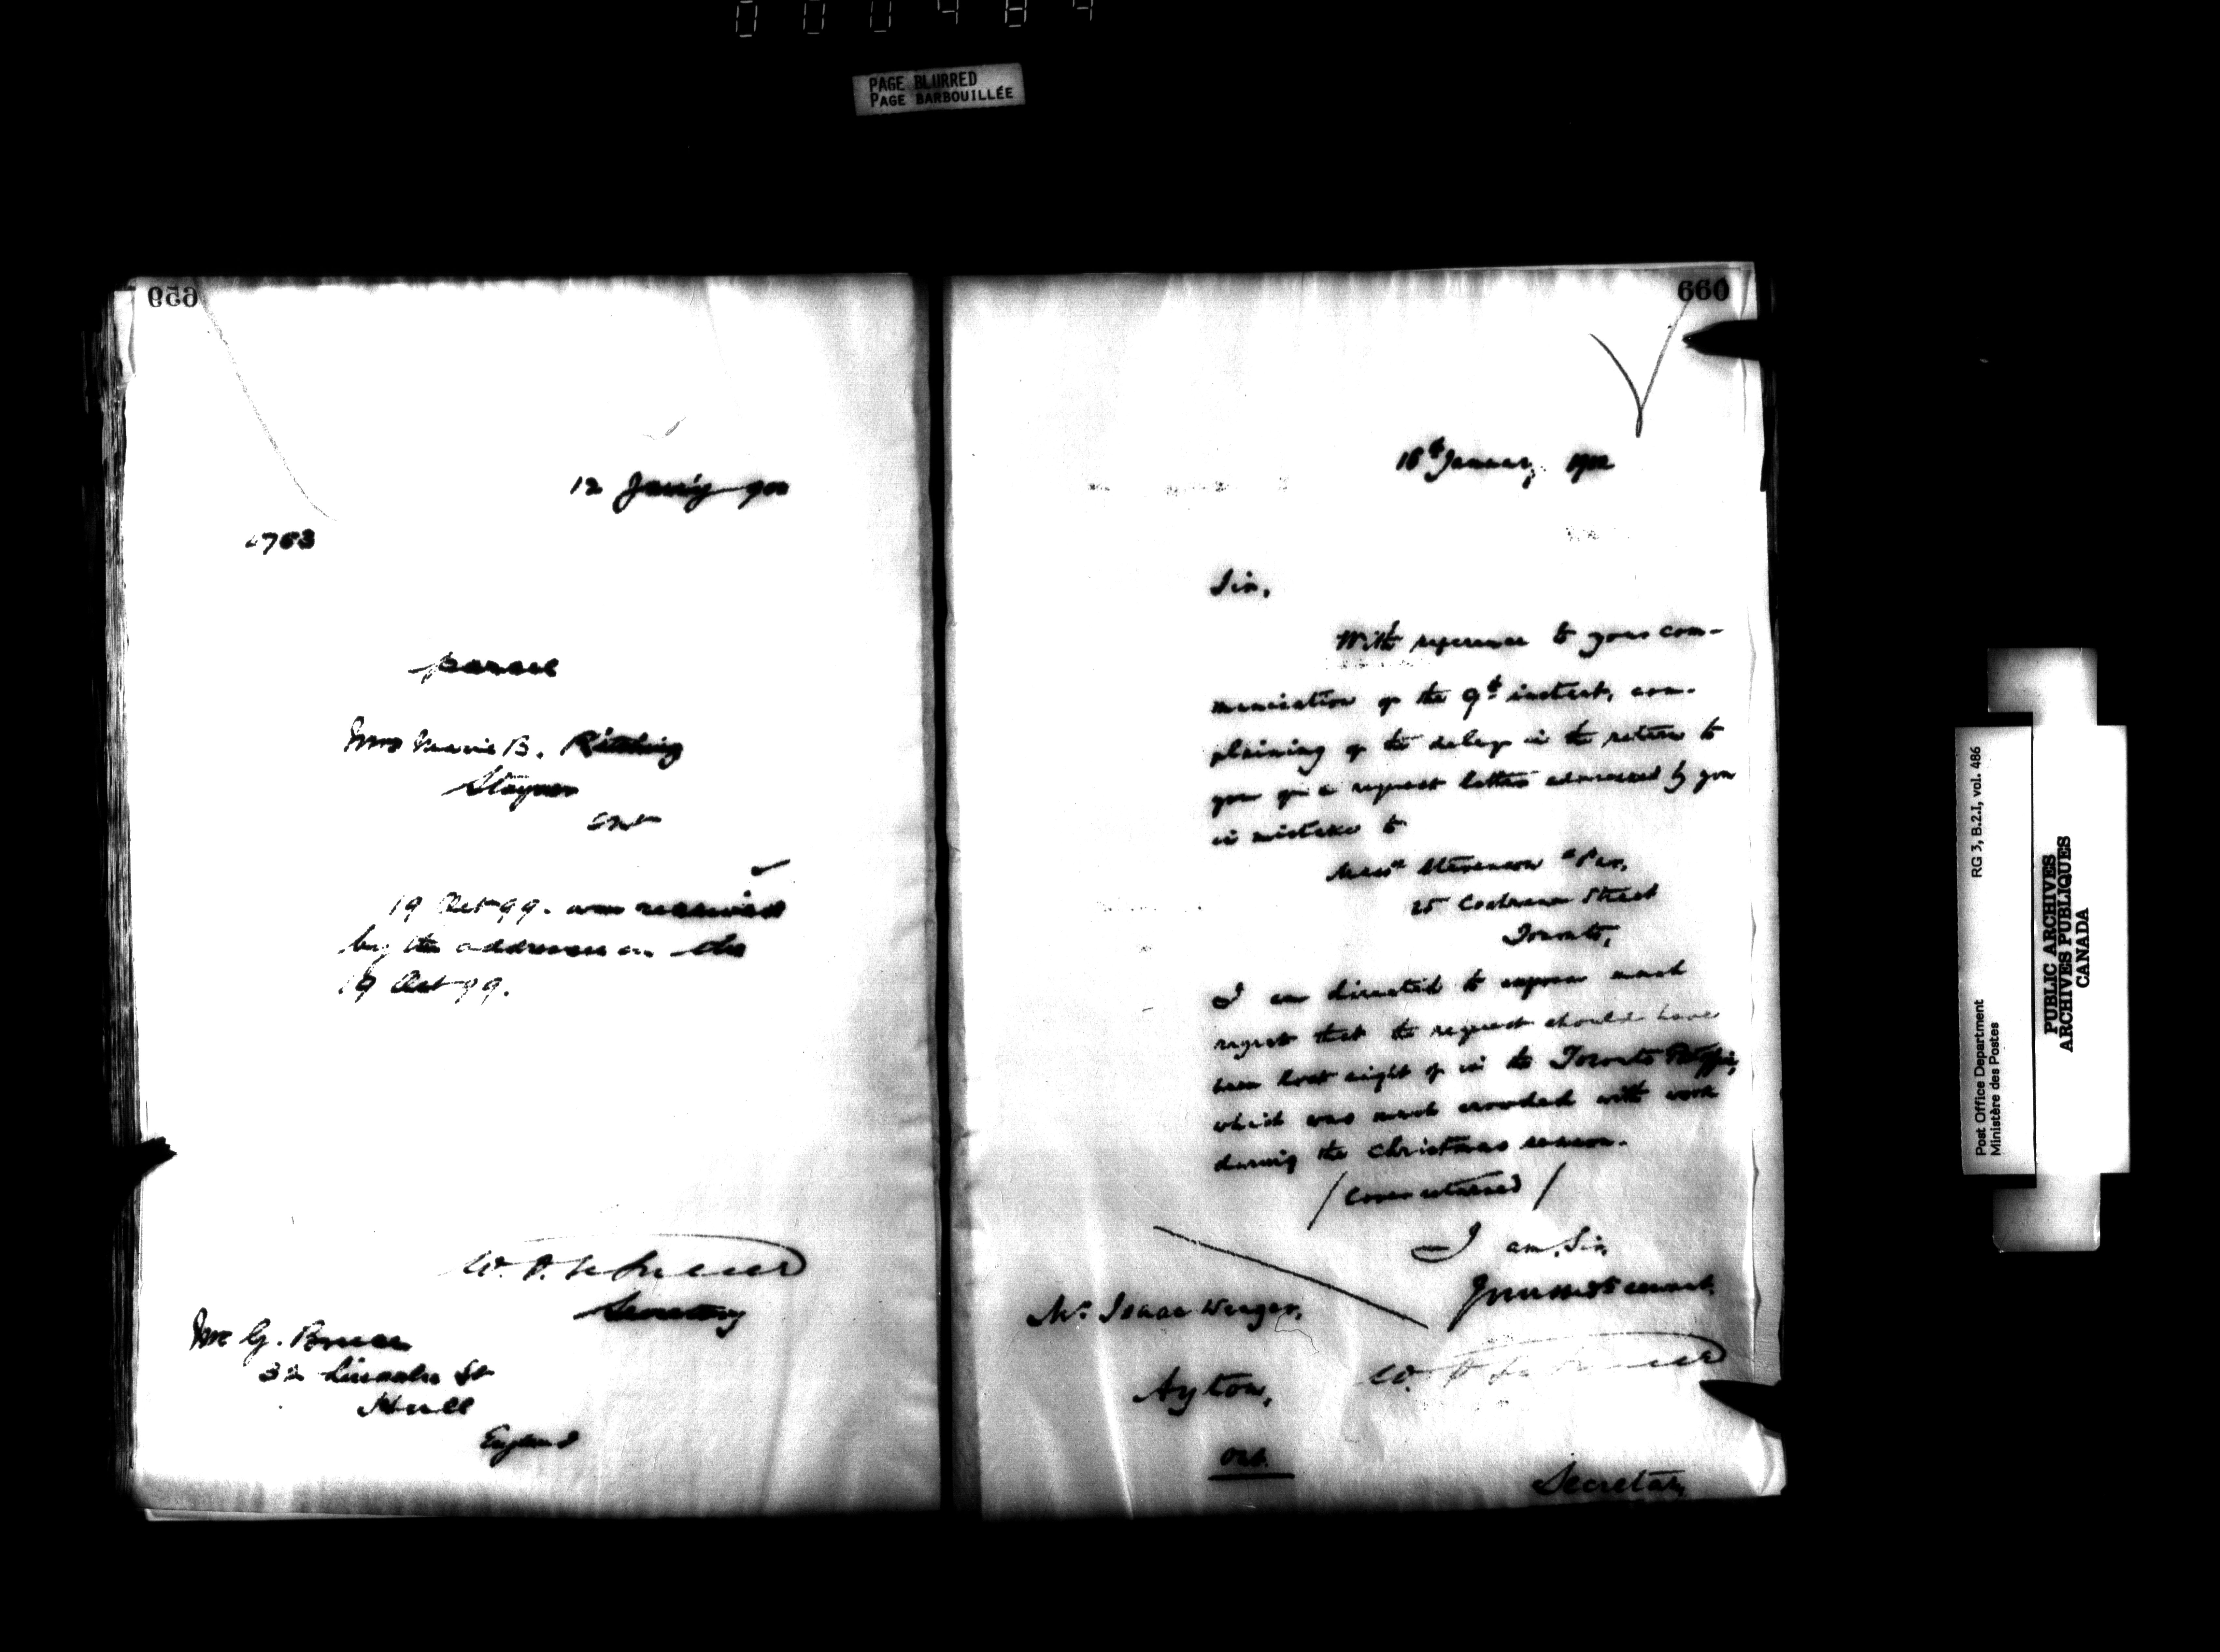 000484
PAGE BLURRED
PAGE BARBOUILLÉE
659
12 Jan'y 900
763
parcel
Mrs B. Ritching
Stayner
Ont
19 Oct 99. was received
by the addressee on the
19 Oct 99.
Secretary
Mr G. Bruce
32 Lincoln St
Hull
England
660
16th January, 1900
Sir,
With reference to your com-
munication of the 9th instant, com-
plaining of the delay in the return to
you of a request letter addressed by you
in mistake to
Messrs Stevenson &
25 Cochrane Street
Toronto,
I am directed to express much
regret that the request should have
been lost sight of in the Toronto Post Office,
which was much crowded with work
during the Christmas season.
/ Cover returned /
I am, Sir,
Your obedt servant,
Mr Isaac Wenger,
Ayton,
Ont.
Secretary
Post Office Department
Ministère des Postes
RG 3, B.2.I, vol. 486
PUBLIC ARCHIVES
ARCHIVES PUBLIQUES
CANADA